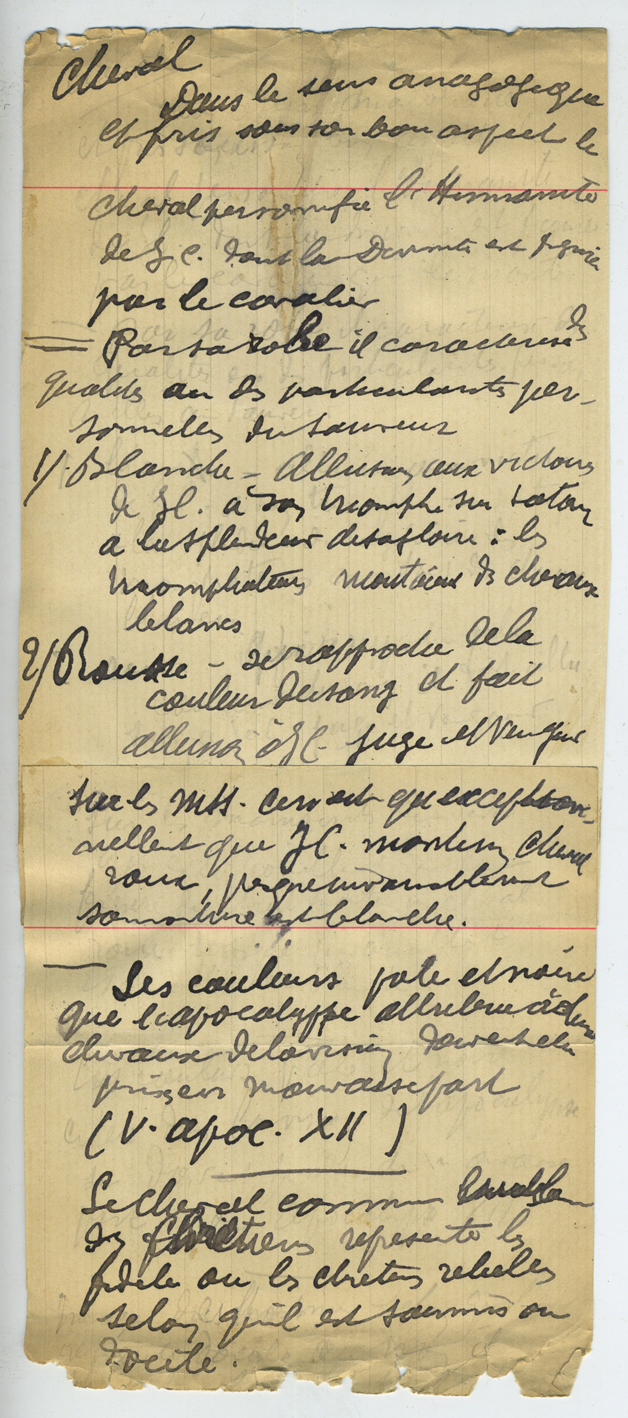 Cheval
Dans le sens anagogique
et pris sous son bon aspect le
cheval personnifie l'Humanité
de J C. dont la Divinité est figurée
par le cavalier
Par sa robe il caractérise des
qualités ou des particularités per-
sonnelles du Sauveur
1/. Blanche – Allusion aux victoires
de JC. à son triomphe sur satan
a la splendeur de sa gloire : les
triomphateurs montaient des chevaux
blancs
2/ Rousse – se rapproche de la
couleur du sang et fait
allusion à JC. juge et vengeur
Sur les Mss. ce n'est qu'exception-
nellement que JC. monte un cheval
roux, presque invariablement
sa monture est blanche.
Les couleurs pale et noire
que l'apocalypse attribue à deux
chevaux de la vision
pris en mauvaise part
(V. apoc. XII)
Le cheval comme
des chrétiens représente les
fidèles ou les chrétiens rebelles
selon qu'il est soumis ou
docile.